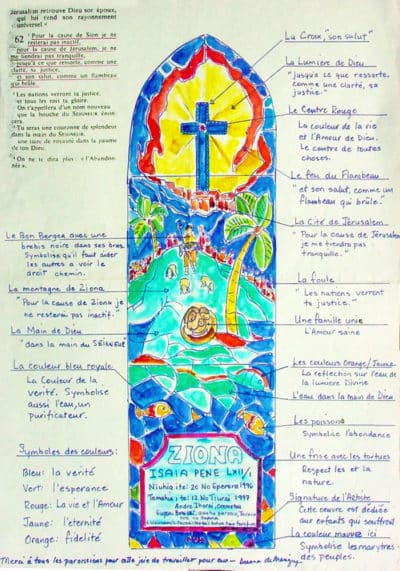 Jérusalem retrouve Dieu son époux,
qui lui rend son rayonnement
universel
62 Pour la cause de Sion je ne
resterai pas inactif,
pour la cause de Jérusalem, je ne
me tiendrai pas tranquille,
jusqu'à ce que ressorte, comme une
clarté, sa justice,
et son salut, comme un flambeau
qui brûle.
Les nations verront ta justice,
et tous les rois ta gloire.
On t'appellera d'un nom nouveau
que la bouche du SEIGNEUR énon-
cera.
Tu seras une couronne de splendeur
dans la main du SEIGNEUR,
une tiare de royauté dans la paume
de ton Dieu.
On ne te dira plus : « l'Abandon-
née »,
Le Bon Berger avec une
brebis noire dans ses bras.
Symbolise qu'il faut aider
les autres a voir le
droit chemin.
La montagne de Ziona
"Pour la cause de Ziona je
ne resterai pas inactif."
La Main de Dieu
"dans la main du SEIGNEUR
La couleur bleu royale
La Couleur de la
verité. Symbolise
aussi l'eau, un
purificateur.
Symboles des couleurs:
Bleu: la verité
Vert: l'esperance
Rouge: La vie et l'Amour
Jaune: l'eternité
Orange: fidelité
La Croix, "son salut"
La Lumiere de Dieu
"jusqu'a ce que ressorte,
comme une clarté, sa
justice."
Le Centre Rouge
La couleur de la vie
et l'Amour de Dieu.
Le centre de toutes
choses.
Le feu du Flambeau
"et son salut, comme un
flambeau qui brûle."
La Cité de Jérusalem
"Pour la cause de Jérusalem
je me tiendrai pas
tranquille."
La foule
"Les nations verront
ta justice."
Une famille unie
L'Amour saine
Les couleurs Orange/Jaune
La reflection sur l'eau de
la lumiere Divine
L'eau dans la main de Dieu.
Les poissons
Symbolise l'abondance
Une frise avec les tortues
Respect les et la
nature.
Signature de l'Artiste
Cette œuvre est dédiée
aux enfants qui souffrent
La couleur mauve ici
Symbolise les martyres
des peuples.
ZIONA
ISAIA PENE LXII/1
Niuhia ite: 20 No Eperera 1996
Tamahia i te: 12 No Tiurai 1997
Merci à tous les paroissiens pour cette joie de travailler pour eux -